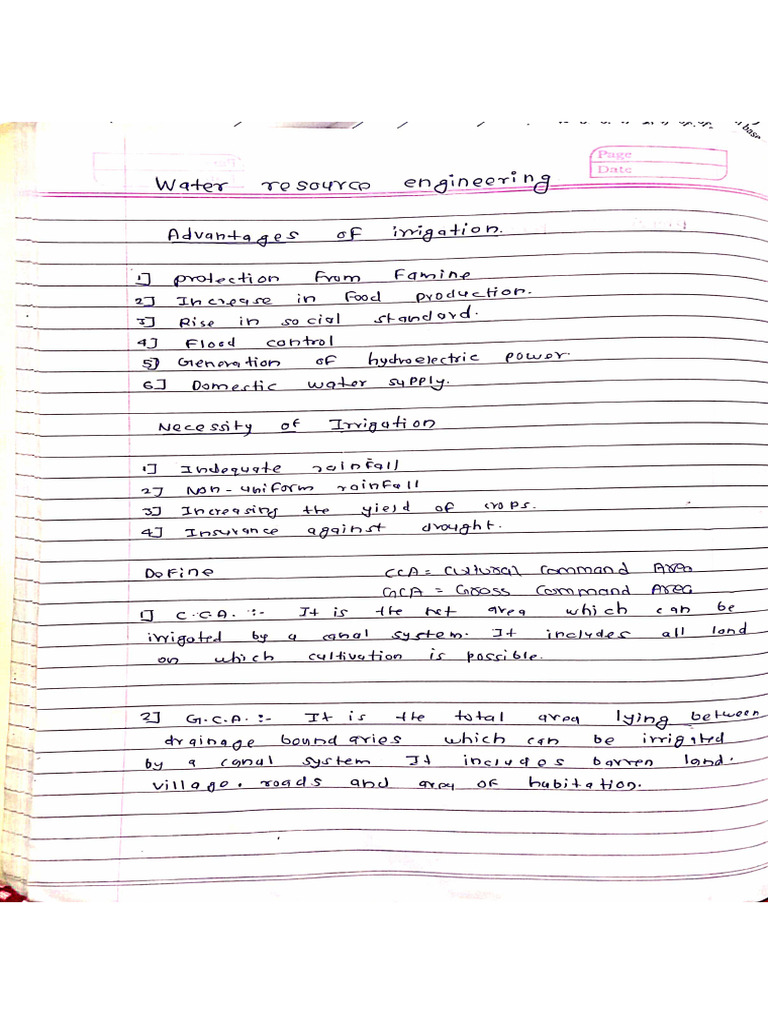 base
Page
Date
Water resource engineering
Advantages of irrigation.
1] protection from famine
2] Increase in food production.
3] Rise in social standard.
4] Flood control
5] Generation of hydroelectric power.
6] Domestic water supply.
Necessity of Irrigation
1] Indequate rainfall
2] Non-uniform rainfall
3] Increasing the yield of crops.
4] Insurance against drought.
Define CCA = Cultural Command Area
GCA = Gross Command Area
1] C.C.A. :- It is the net area which can be
irrigated by a canal system. It includes all land
on which cultivation is possible.
2] G.C.A. :- It is the total area lying between
drainage boundaries which can be irrigated
by a canal system It includes barren land.
village, roads and area of habitation.